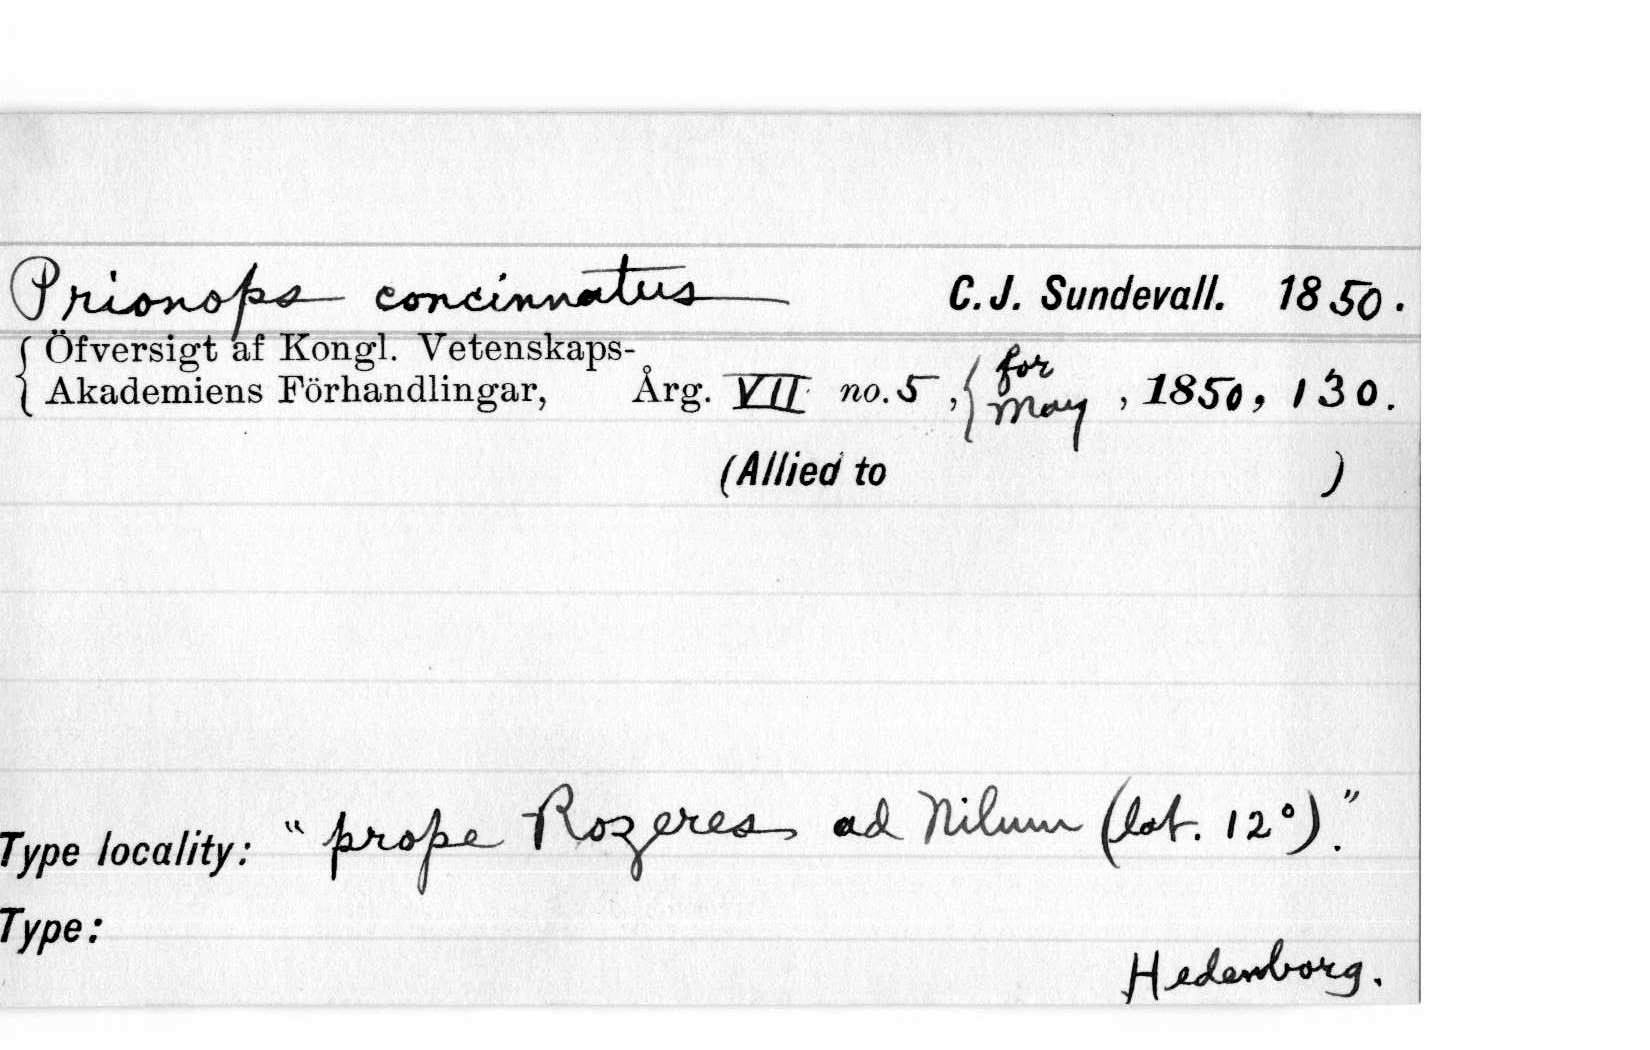 Prionops concinnatus C.J. Sundevall. 1850.
Öfversigt af Kongl. Vetenskaps-
Akademiens Förhandlingar, Årg. VII no. 5, for May, 1850, 130.
(Allied to )
Type locality: "prope Rozeres ad Nilum (lat. 12°)."
Type:
Hedenborg.